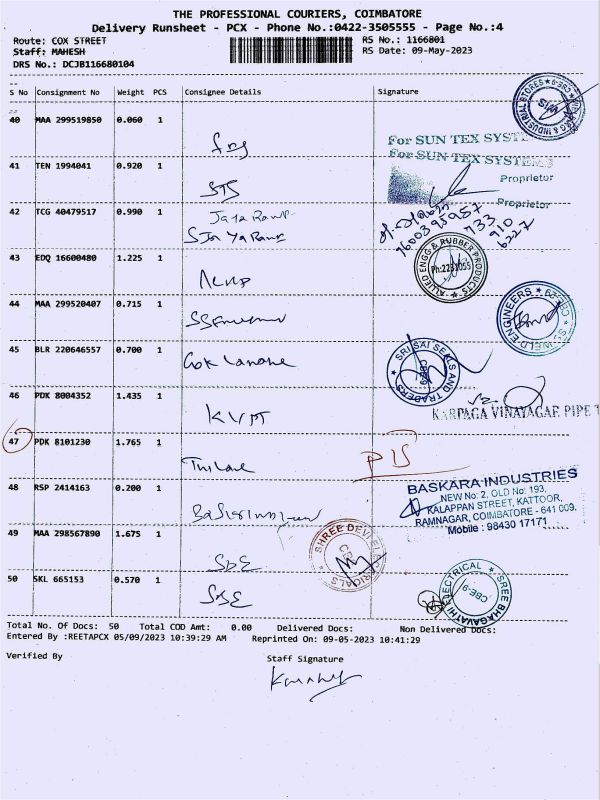 THE PROFESSIONAL COURIERS, COIMBATORE
Delivery Runsheet - PCX - Phone No.:0422-3505555 - Page No.:4
Route: COX STREET
RS No.: 1166801
Staff: MAHESH
RS Date: 09-May-2023
DRS No.: DCJB116680104
S No Consignment No Weight PCS Consignee Details Signature
40 MAA 299519850 0.060 1
For SUN TEX SYSTEMS
For SUN TEX SYSTEMS
41 TEN 1994041 0.920 1
STS
Proprietor
Proprietor
42 TCG 40479517 0.990 1
43 EDQ 16600480 1.225 1
ALLIED ENGG & RUBBER PRODUCTS
Ph:2231055
44 MAA 299520407 0.715 1
WELD ENGINEERS ★ CBE-29 ★
45 BLR 220646557 0.700 1
SRI SAI SEALS AND TRADERS
46 PDK 8004352 1.435 1
KVPT
KARPAGA VINAYAGAR PIPE T
47 PDK 8101230 1.765 1
48 RSP 2414163 0.200 1
BASKARA INDUSTRIES
NEW No: 2, OLD No: 193,
KALAPPAN STREET, KATTOOR,
RAMNAGAR, COIMBATORE - 641 009.
Mobile : 98430 17171
49 MAA 298567890 1.675 1
SDE
SHREE DEVI ELECTRICALS
50 SKL 665153 0.570 1
SBE
SREE BHAGAVATHI ELECTRICAL
CBE-9
Total No. Of Docs: 50 Total COD Amt: 0.00 Delivered Docs: Non Delivered Docs:
Entered By :REETAPCX 05/09/2023 10:39:29 AM Reprinted On: 09-05-2023 10:41:29
Verified By
Staff Signature